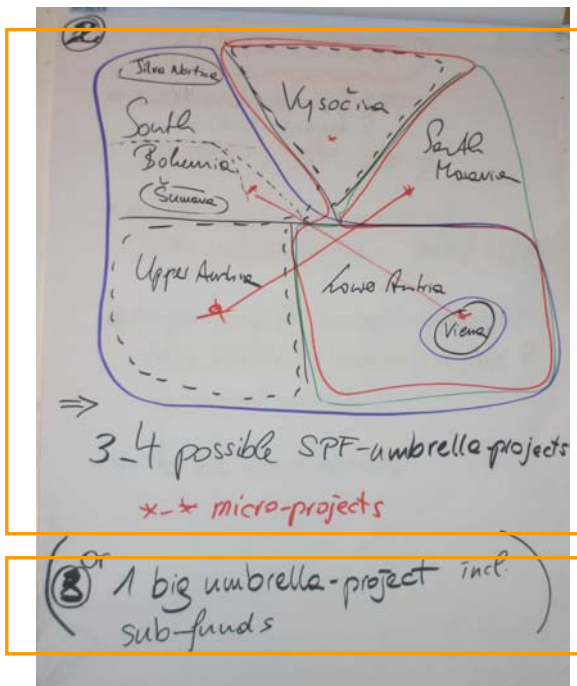 2
Silva Nortica
South
Bohemia
Šumava
Vysočina
South
Moravia
Upper Austria
Lower Austria
Vienna
⇒
3-4 possible SPF-umbrella-projects
*-* micro-projects
(or
3 1 big umbrella-project incl.
sub-funds)